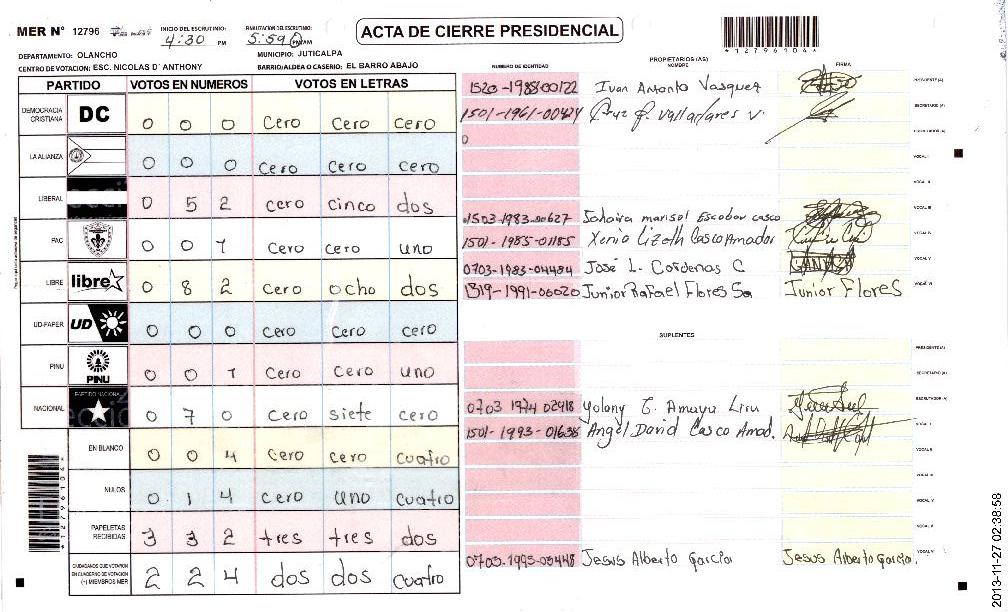 MER N° 12796 INICIO DEL ESCRUTINIO: 4:30 PM FINALIZACION DEL ESCRUTINIO: 5:59 PM AM
ACTA DE CIERRE PRESIDENCIAL
*12796104*
DEPARTAMENTO: OLANCHO MUNICIPIO: JUTICALPA
CENTRO DE VOTACION: ESC. NICOLAS D´ ANTHONY BARRIO/ALDEA O CASERIO: EL BARRO ABAJO
PARTIDO VOTOS EN NUMEROS VOTOS EN LETRAS
DEMOCRACIA CRISTIANA DC 0 0 0 cero cero cero
LA ALIANZA 0 0 0 cero cero cero
LIBERAL 0 5 2 cero cinco dos
PAC 0 0 1 cero cero uno
LIBRE libre 0 8 2 cero ocho dos
UD-FAPER UD 0 0 0 cero cero cero
PINU PINU 0 0 1 cero cero uno
NACIONAL PARTIDO NACIONAL 0 7 0 cero siete cero
EN BLANCO 0 0 4 cero cero cuatro
NULOS 0 1 4 cero uno cuatro
PAPELETAS RECIBIDAS 3 3 2 tres tres dos
CIUDADANOS QUE VOTARON EN CUADERNO DE VOTACION (+) MIEMBROS MER 2 2 4 dos dos cuatro
PROPIETARIOS (AS)
NUMERO DE IDENTIDAD NOMBRE FIRMA
1520-1988-00122 Ivan Antonio Vasquez PRESIDENTE (A)
1501-1961-00424 Cruz P. Valladares V. SECRETARIO (A)
0 ESCRUTADOR (A)
VOCAL I
VOCAL II
1503-1983-00627 Sahaira marisol Escobar casco VOCAL III
1501-1985-01185 Xenia Lizeth Casco Amador VOCAL IV
0703-1983-04484 José L. Cardenas C VOCAL V
1519-1991-00020 Junior Rafael Flores Sa Junior Flores VOCAL VI
SUPLENTES
PRESIDENTE (A)
SECRETARIO (A)
0703 1974 02918 Yolany E. Amaya Lisu ESCRUTADOR (A)
1501-1993-01638 Angel David Casco Amad. VOCAL I
VOCAL II
VOCAL III
VOCAL IV
VOCAL V
0703-1995-03448 Jesus Alberto Garcia Jesus Alberto Garcia. VOCAL VI
*12796104*
2013-11-27 02:38:58